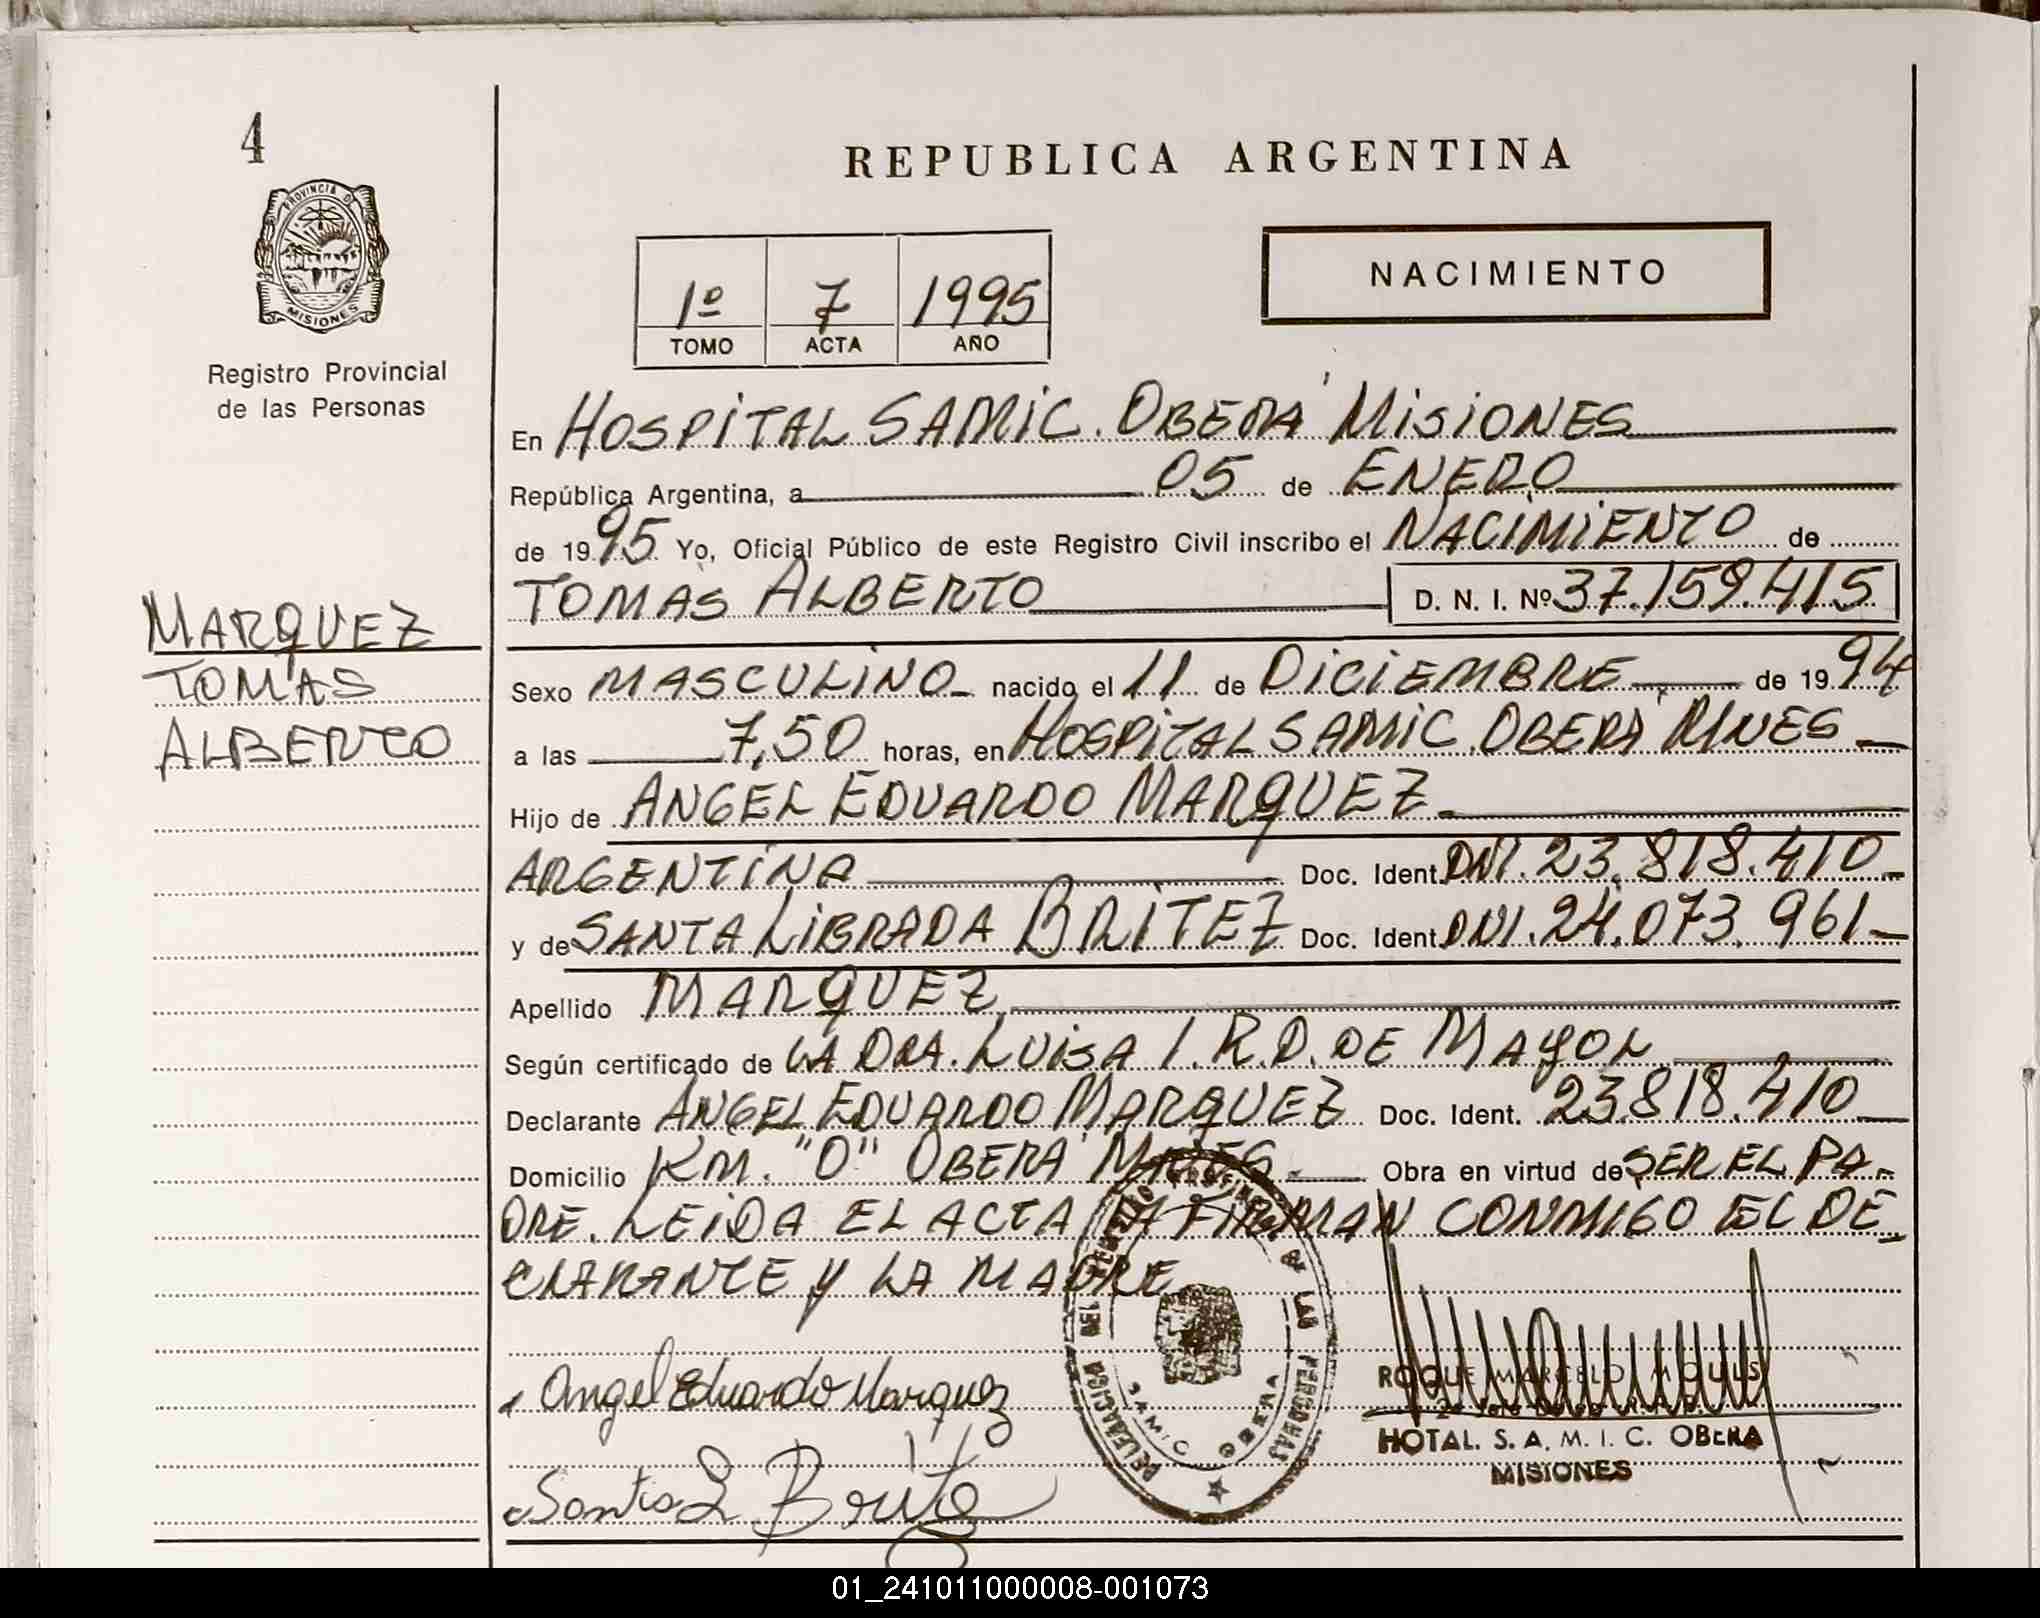 4
PROVINCIA DE
MISIONES
Registro Provincial
de las Personas
MARQUEZ
TOMAS
ALBERTO
REPUBLICA ARGENTINA
1º 7 1995
TOMO ACTA AÑO
NACIMIENTO
En HOSPITAL SAMIC. OBERA' MISIONES
República Argentina, a 05 de ENERO
de 1995 Yo, Oficial Público de este Registro Civil inscribo el NACIMIENTO de
TOMAS ALBERTO D. N. I. Nº 37.159.415
Sexo MASCULINO nacido el 11 de DICIEMBRE de 1994
a las 7,50 horas, en HOSPITAL SAMIC. OBERA'
Hijo de ANGEL EDUARDO MARQUEZ
ARGENTINA Doc. Ident. DNI. 23.818.410
y de SANTA LIBRADA BRITEZ Doc. Ident. DNI. 24.073.961
Apellido MARQUEZ
Según certificado de LA DRA. LUISA I. R. D. DE MAYOL
Declarante ANGEL EDUARDO MARQUEZ Doc. Ident. 23.818.410
Domicilio KM. "0" OBERA' Obra en virtud de SER EL PA-
DRE. LEIDA EL ACTA LA FIRMAN CONMIGO EL DE-
CLARANTE Y LA MADRE
Angel Eduardo Marquez
Santa L Britez
DELEGACION
DE LAS PERSONAS
SAMIC OBERA
ROQUE MARCELO
HOTAL. S. A. M. I. C. OBERA
MISIONES
01_241011000008-001073